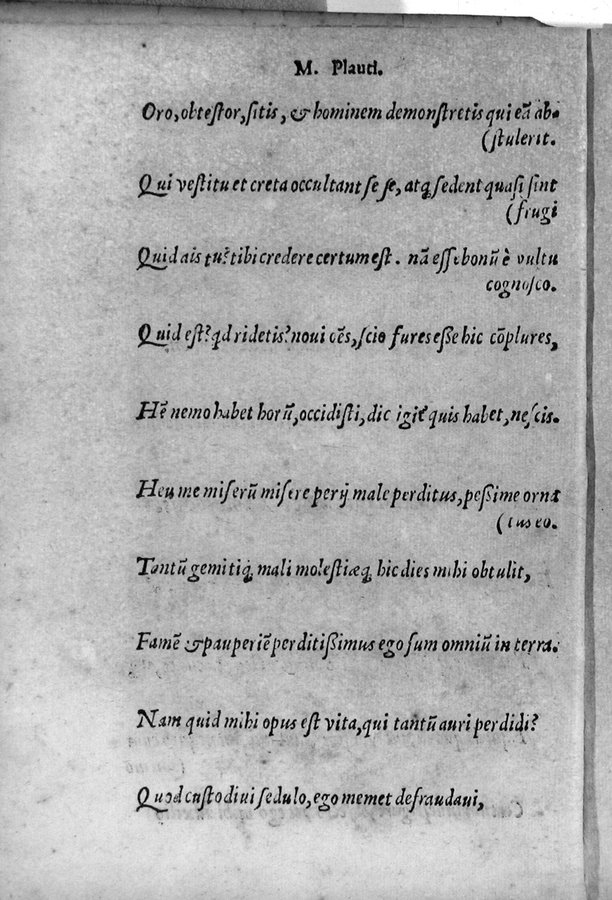 M. Plauti.
Oro, obtestor, ſitis, & hominem demonſtretis qui eā ab-
(ſtulerit.
Qui veſtitu et creta occultant ſe ſe, atq; ſedent quaſi ſint
(frugi
Quid ais tu? tibi credere certum eſt. nā eſſe bonū è vultu
cognoſco.
Quid eſt? qd ridetis? noui oēs, ſcio fures eße hic cōplures,
Hē nemo habet horū, occidiſti, dic igit̃ quis habet, neſcis.
Heu me miſerū miſere perij male perditus, peßime orna
(tus eo.
Tantū gemitiq; mali moleſtiæq; hic dies mihi obtulit,
Famē & pauperiē perditißimus ego ſum omniū in terra.
Nam quid mihi opus eſt vita, qui tantū auri perdidi?
Quod cuſtodiui ſedulo, ego memet defraudaui,